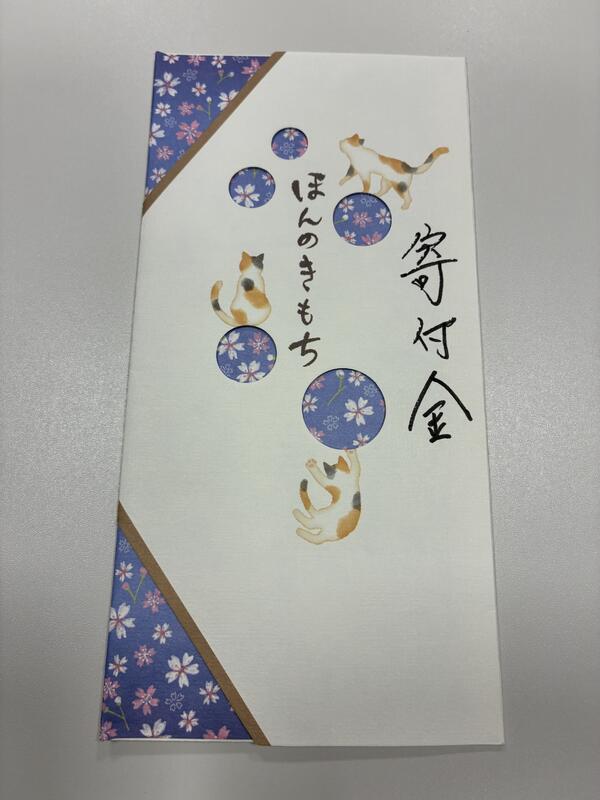 寄付金
ほんのきもち